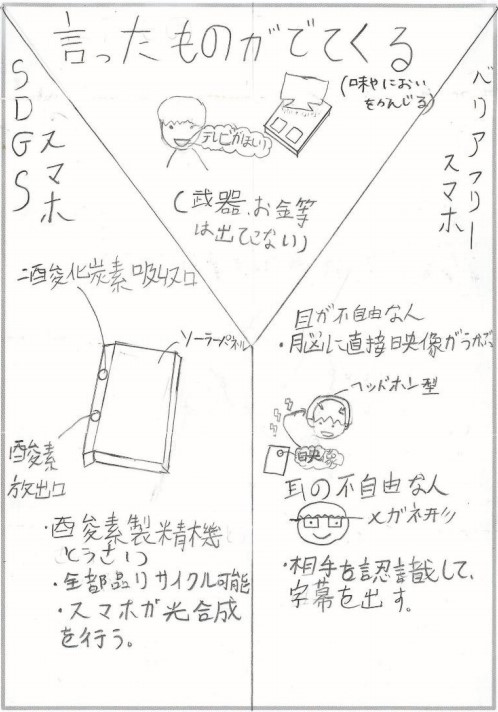 言ったものがでてくる
(味やにおい
をかんじる)
テレビがほしい
(武器、お金等
は出てこない)
SDGS
スマホ
二酸化炭素吸収口
ソーラーパネル
酸素
放出口
・酸素製精機
とうさい
・全部品リサイクル可能
・スマホが光合成
を行う。
バリアフリー
スマホ
目が不自由な人
・脳に直接映像がうかぶ
ヘッドホン型
映像
耳の不自由な人
メガネ形
・相手を認識して、
字幕を出す。